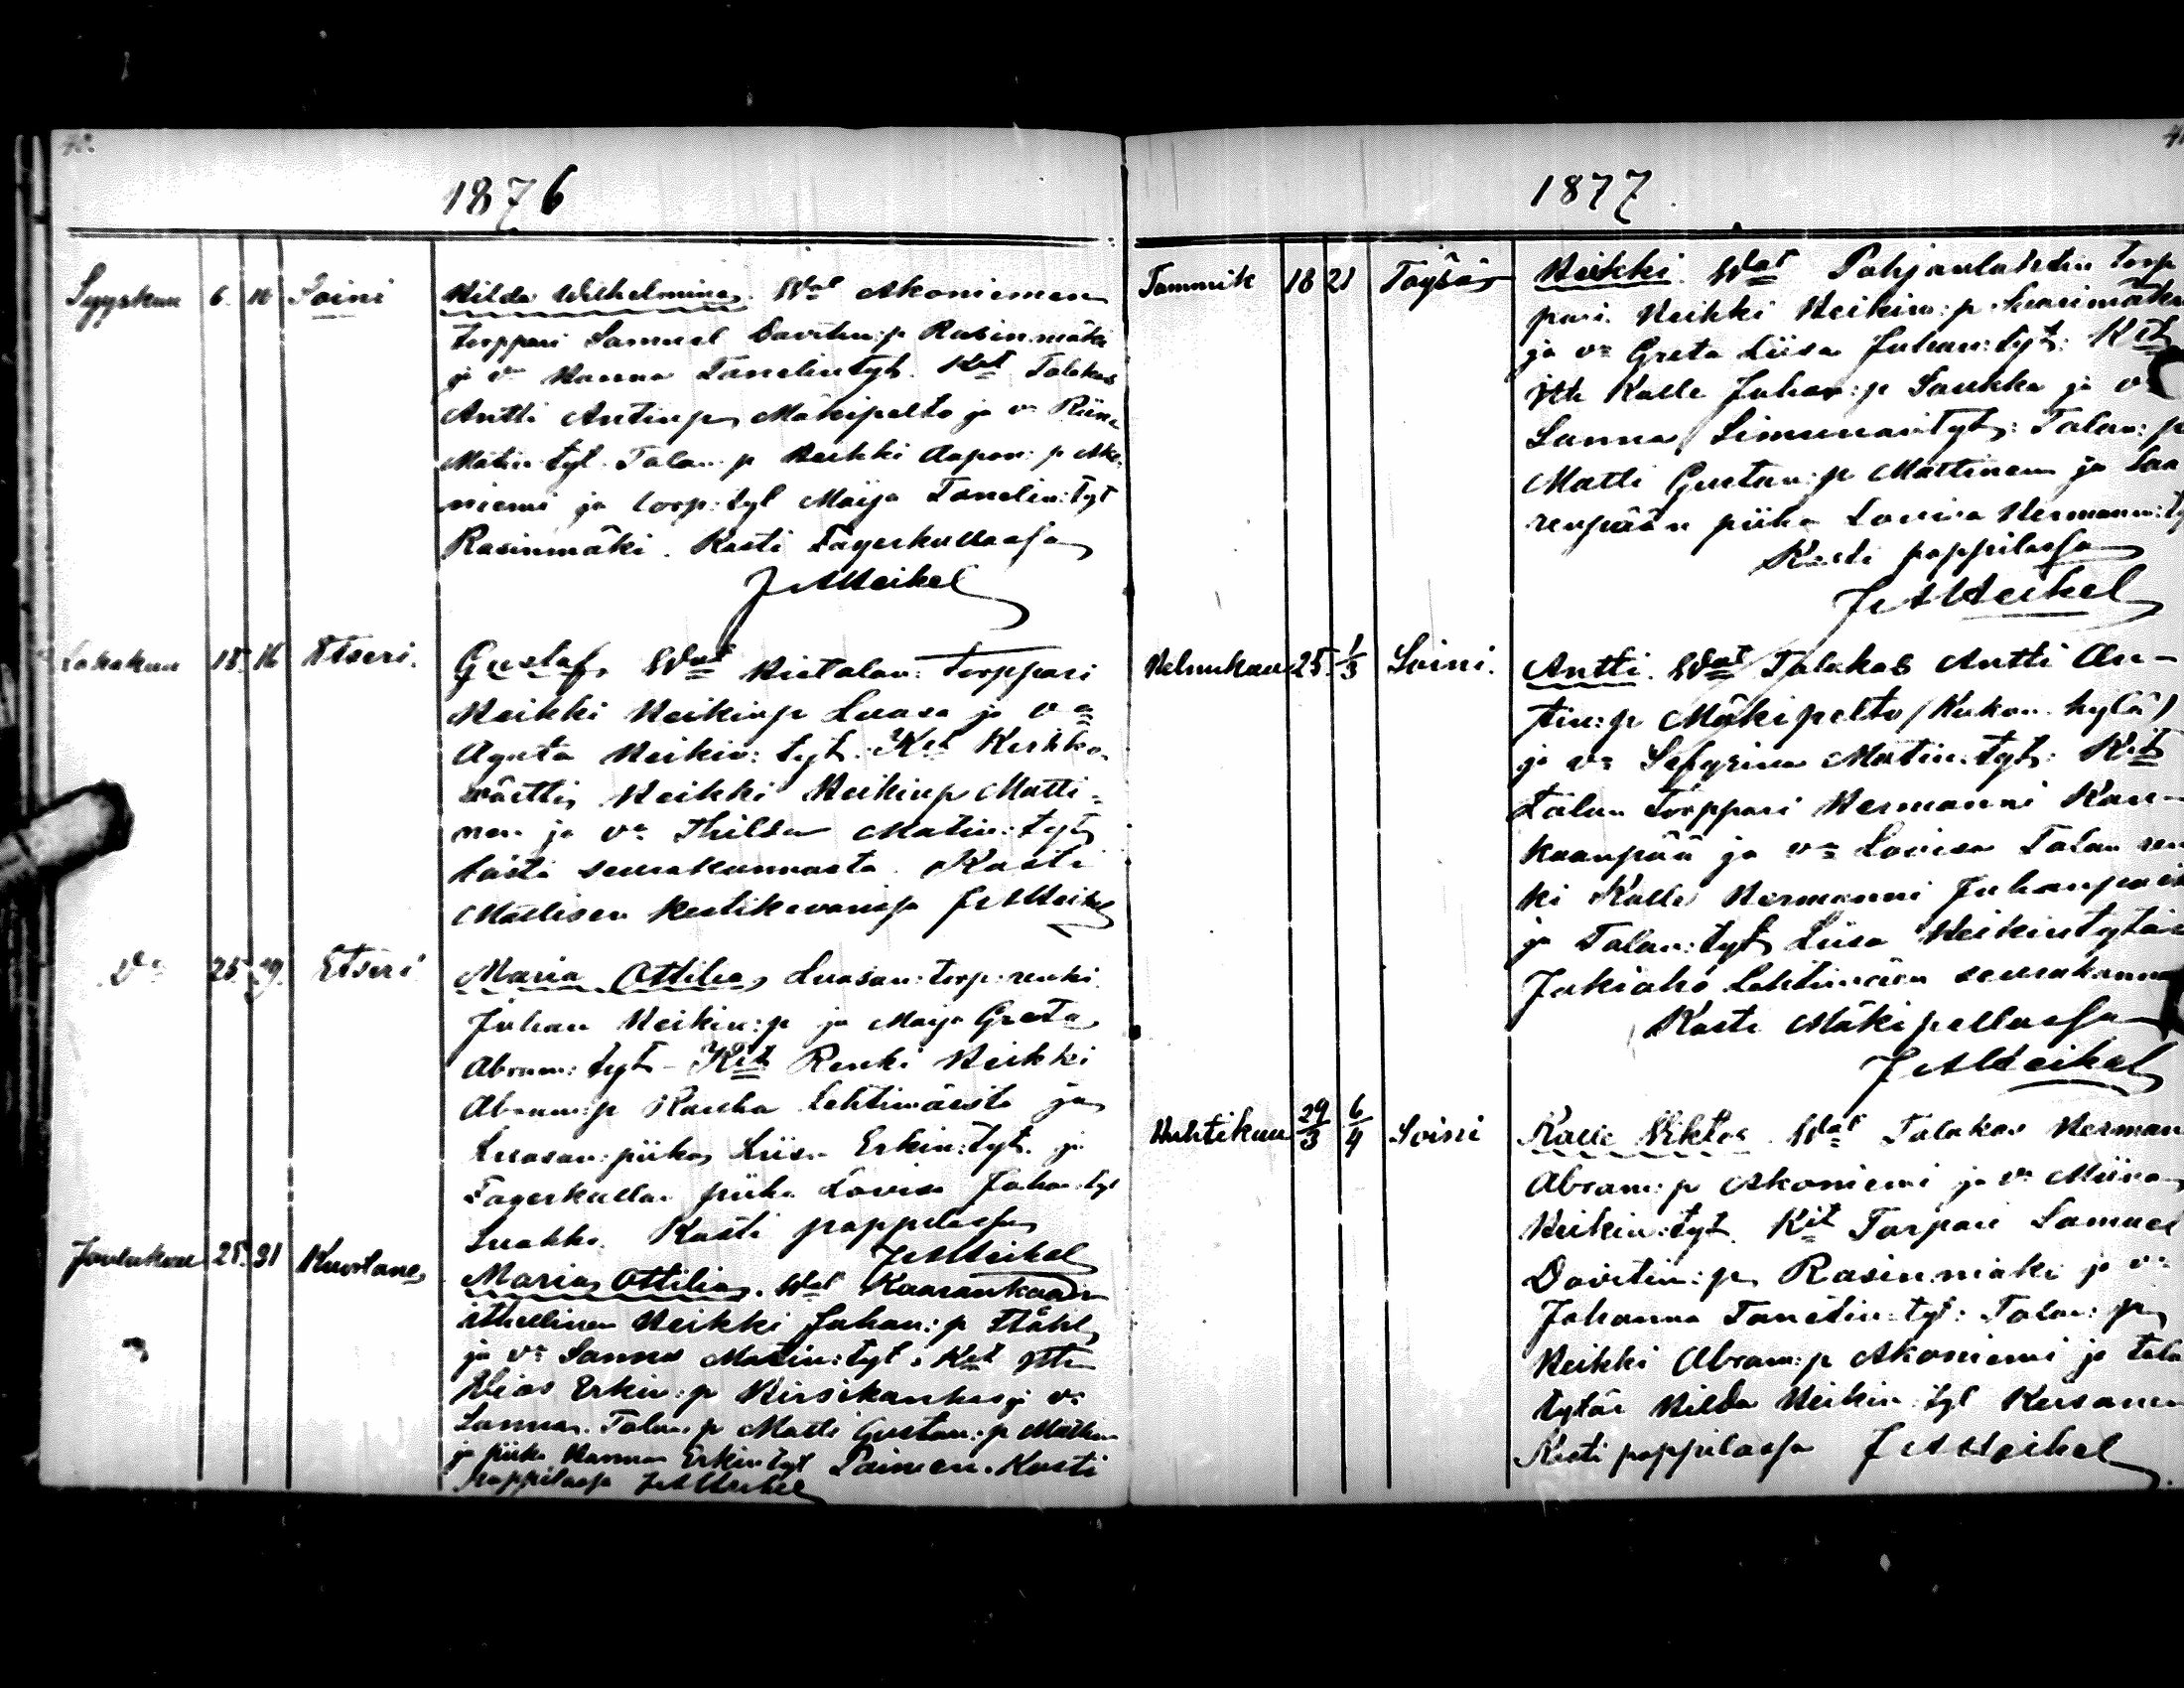 1876
Syyskuu 6. 10 Soini Hilda Wilhelmina. Wat Akoniemen
torppari Samuel Davitin:p Rasinmäki
ja vo Hanna Tanelintyt. Kit Talokas
Antti Antinp Mäkipelto ja vo Riina
Matin tyt. Talon p Heikki Aapon: p Ako-
niemi ja torp: tyt Maija Tanelin: tyt
Rasinmäki. Kasti Fagerkullassa
J A Heikel
Lokakuu 15 16 Etseri. Gustaf, Wat Hietalan: torppari
Heikki Heikinp Luasa ja vo
Ageta Heikin: tyt. Kit Kirkko-
värtti Heikki Heikinp Matti-
nen ja vo Thilda Matin: tyt
tästä seurakunnasta. Kasti
Mattisen kestikievarissa J A Heikel
vo 25 29. Etseri Maria Ottilia, Luasan: torp: renki
Juhan Heikin:p ja Maija Greta
Abram: tyt - Kit Renki Heikki
Abram:p Rauha Lehtimäestä ja
Luasan: piika Liisa Erkin: tyt. ja
Fagerkullan piika Lovisa Juhan: tyt
Luakko. Kasti pappilassa
J A Heikel
Joulukuu 25. 31 Kuortane Maria Ottilia. Wat Kaarankaan
itsellinen Heikki Juhan: p Ståhl
ja vo Sanna Matin: tyt. Kit Its
Elias Erkin: p Hirsikangas ja vo
Sanna. Talon. p Matti Gustan: p Mattinen
ja piika Hanna Erkin tyt Painen. Kasti
pappilassa J A Heikel
1877.
Tammik 18 21 Töysä Heikki. Wat Pohjanlahden torp
pari. Heikki Heikin: p
ja vo Greta Liisa Juhan: tyt: Kit
its Kalle Juhan: p Saukko ja vo
Sanna Simunan tyt: Talon: p
Matti Gustan: p Mattinen ja Saa
renpään piika Lovisa Hermann: ty
Kasti pappilassa
J A Heikel
Helmikuu 25. 1/3 Soini. Antti. Wat Talokas Antti An-
tin: p Mäkipelto (Kukon kylä)
ja vo Sefyrina Matin. tyt: Kit
Talon Torppari Hermanni Kan-
kaanpää ja vo Lovisa Talon ren
ki Kalle Hermanni Juhanpoik
ja Talon: tyt Liisa Heikintytär
Jokiaho Lehtimäen seurakunna
Kasti Mäkipellassa
J A Heikel
Huhtikuu 29/3 6/4 Soini Kalle Viktor. Wat Talokas Herman
Abram: p Akoniemi ja vo Miina
Heikin: tyt. Kit Torpari Samuel
Davitin: p Rasinmäki ja vo
Johanna Tanelin tyt: Talon: p
Heikki Abram: p Akoniemi ja talo
tytär Hilda Heikin: tyt
Kasti pappilassa J A Heikel